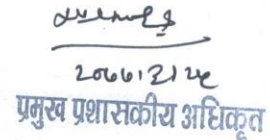 २०७७।३।२५
प्रमुख प्रशासकीय अधिकृत